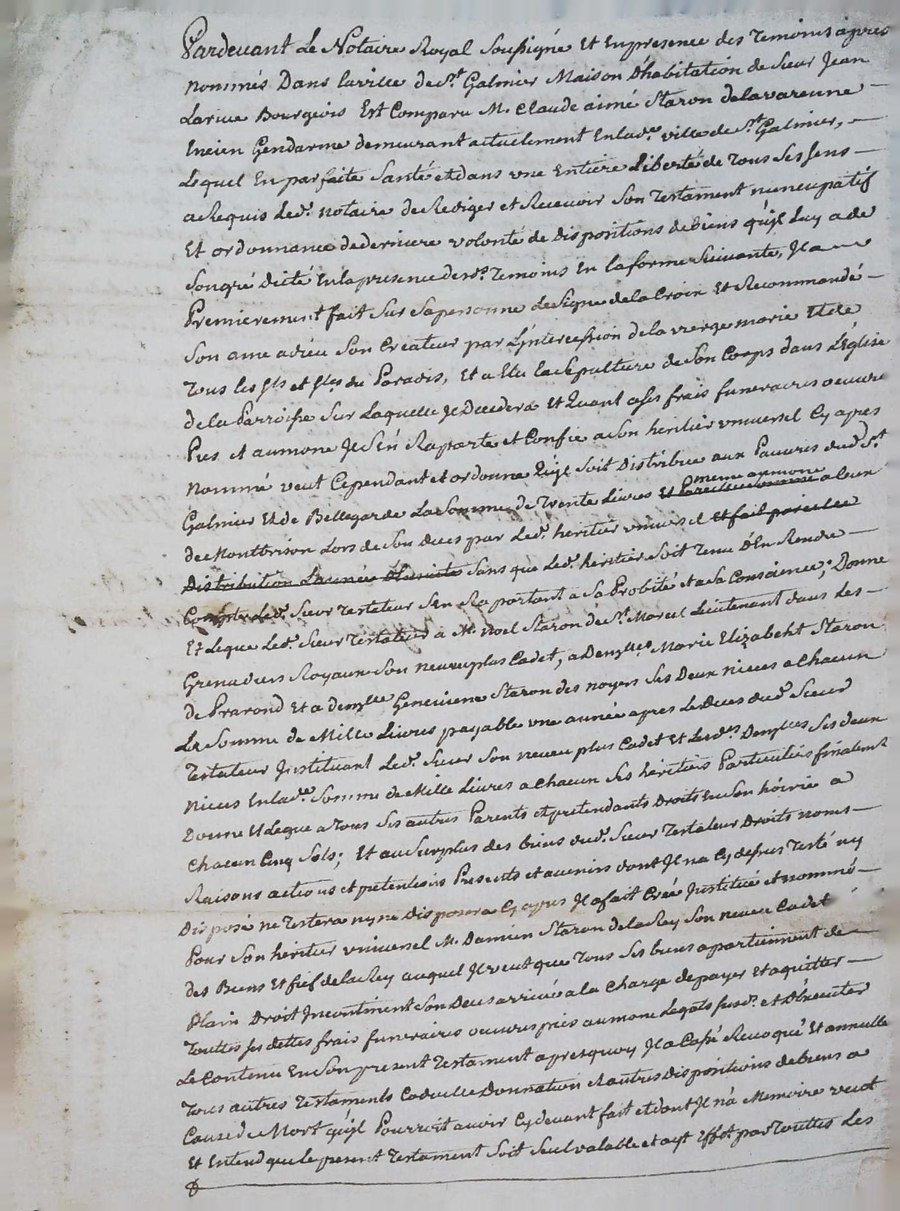 Pardevant Le Notaire Royal Soussigné Et En presence des Temoins après
nommés Dans la ville de St. Galmier Maison D'habitation de Sieur Jean
Larive Bourgeois Est Comparu M. Claude aimé Staron delavarenne
Encien Gendarme demeurant actuellement Enlade. ville de St. Galmier,
Lequel En parfaite Santé et dans une Entiere Liberté de Tous Ses Sens
a Requis Led. notaire de Rediger et Recevoir Son Testament nuncupatif
Et ordonnance de derniere volonté de Dispositions de biens qu'il luy a de
Songré Dicté En la presence desd. Temoins En la forme Suivante, Il a
Premierement fait Sur Sa personne Le Signe de la Croix Et Recommandé
Son ame a dieu Son Createur par L'intercession de la vierge marie Et de
Tous les Sts et Stes du Paradis, Et a Elu la Sepulture de Son Corps dans L'Eglise
de la Parroisse Sur Laquelle Il Decedera Et Quant a Ses frais funeraires oeuvre
Pies et aumone Il S'En Raporte et Confie a Son heritier universel Cy apres
nommé veut Cependant et ordonne Qu'il Soit Distribué aux Pauvres dud. St
Galmier Et de Bellegarde La Somme de Trente Livres Et même aumone a Ceux
de Montbrison Lors de Son deces par Led. heritier universel et fait pareille
Distribution L'année Sans que Led. heritier Soit Tenu D'En Rendre
Compte Led. Sieur Testateur S'en Raportant a Sa Probité Et a Sa Conscience; Donne
Et Legue Led. Sieur Testateur a Mr. Noel Staron de St. Marcel Lieutenant dans Les
Grenadiers Royaux Son neveu plus Cadet, a Demlle. Marie Elizabeht Staron
de Prarond Et a demlle Genevieve Staron des noyers Ses Deux nieces a Chacun
La Somme de Mille Livres payable une année apres Le Deces dud. Sieur
Testateur Instituant Led. Sieur Son neveu plus Cadet Et Lesdes. Demlles Ses deux
Nieces Enlade. Somme de Mille Livres a Chacun Ses héritiers Particuliers finalement
Donne Et Legue a Tous Ses autres Parents et pretendants Droits En Son hoirie a
Chacun Cinq Sols; Et au Surplus des biens dud. Sieur Testateur Droits noms
Raisons actions et pretentions Presents et avenirs dont Il na Cy depus Testé ny
Disposé ne Testera ny ne Disposera Cy apres Il a fait Créé Institué et nommé
Pour Son heritier universel M. Damien Staron de la Rey Son neveu Cadet
des Biens Et fief de la Rey auquel Il veut que Tous Ses biens apartiennent de
Plain Droit Incontinent Son Deces arrivé a la Charge de payer Et aquitter
Touttes Ses dettes frais funeraires oeuvres pies aumone Legats Susd. et D'Executer
Le Contenu En Son present Testament apres quoy Il a Cassé Revoqué Et annulle
Tous autres Testaments Codicille Donnation Et autres Dispositions de biens a
Cause de Mort qu'il Pourroit avoir Cy devant fait et dont Il n'a Memoire veut
Et Entend que le present Testament Soit Seul valable et ayt Effet par Touttes Les